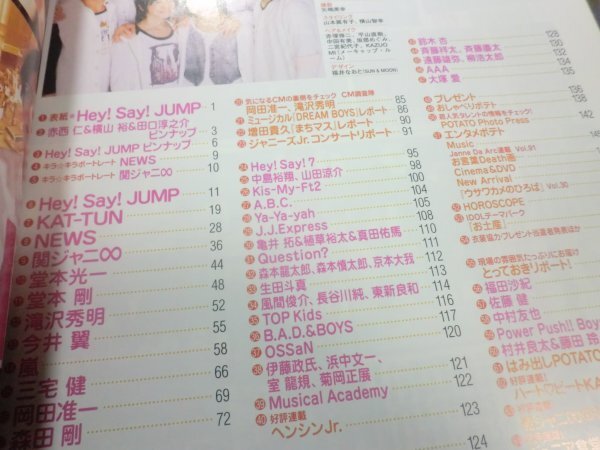 撮影
矢嶋恵幸
スタイリング
ヘア&メイク
デザイン
福井なおと(SUN & MOON)
① 表紙・Hey! Say! JUMP 1
② 赤西 仁&横山 裕&田口淳之介
ピンナップ 3
③ Hey! Say! JUMP ピンナップ 6
④ キラ☆キラポートレート NEWS 9
⑤ キラ☆キラポートレート 関ジャニ∞ 10
⑥ Hey! Say! JUMP 11
⑦ KAT-TUN 19
⑧ NEWS 28
⑨ 関ジャニ∞ 36
⑩ 堂本光一 44
⑪ 堂本 剛 48
⑫ 滝沢秀明 52
今井 翼 55
嵐 58
三宅 健 66
岡田准一 69
森田 剛 72
⑳ 気になるCMの裏側をチェック CM調査隊
岡田准一、滝沢秀明 85
㉑ ミュージカル『DREAM BOYS』レポート 86
㉒ 増田貴久『まちマス』レポート 90
㉓ ジャニーズJr.コンサートリポート 91
㉔ Hey! Say! 7
㉕ 中島裕翔、山田涼介
㉖ Kis-My-Ft2
㉗ A.B.C.
㉘ Ya-Ya-yah 108
㉙ J.J.Express 110
㉚ 亀井 拓&植草裕太&真田佑馬 111
㉛ Question? 112
㉜ 森本龍太郎、森本慎太郎、京本大我 112
㉝ 生田斗真 113
㉞ 風間俊介、長谷川純、東新良和 114
㉟ TOP Kids 116
㊱ B.A.D.&BOYS 117
㊲ OSSaN 120
㊳ 伊藤政氏、浜中文一、
室 龍規、菊岡正展 121
㊴ Musical Academy 122
㊵ 好評連載
ヘンシンJr. 123
124
鈴木 杏 128
斉藤祥太、斉藤慶太 130
遠藤雄弥、柳浩太郎 132
AAA 134
大塚 愛 135
プレゼント 136
おしゃべりポテト 138
POTATO Photo Press 142
エンタメポテト
Music
Janne Da Arc連載 Vol.91
お言葉Death画
Cinema&DVD
New Arrival
『ウサワカメのひろば』 Vol.30
HOROSCOPE
IDOLテーマパーク
『お土産』
現場の雰囲気たっぷりにお届け
とっておきリポート!
福田沙紀
佐藤 健
中村友也
Power Push!! Boy
村井良大&藤田 玲
はみ出しPOTATO
好評連載
ハートフビートKA